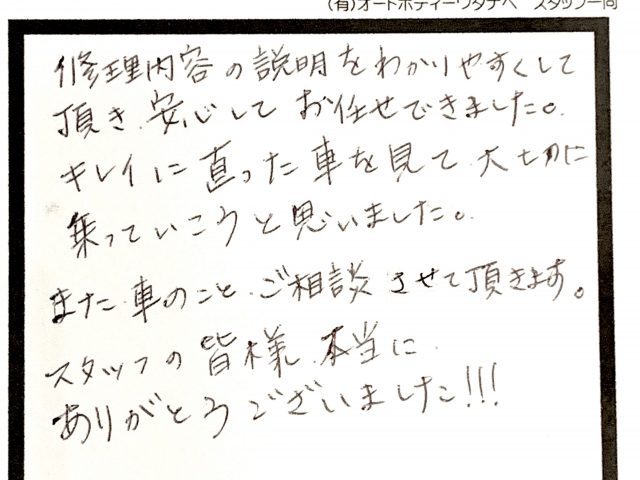 (有)オートボディーワタナベ スタッフ一同
修理内容の説明をわかりやすくして
頂き、安心して お任せできました。
キレイに直った車を見て、大切に
乗っていこうと思いました。
また、車のこと、ご相談させて頂きます。
スタッフの皆様、本当に
ありがとうございました!!!